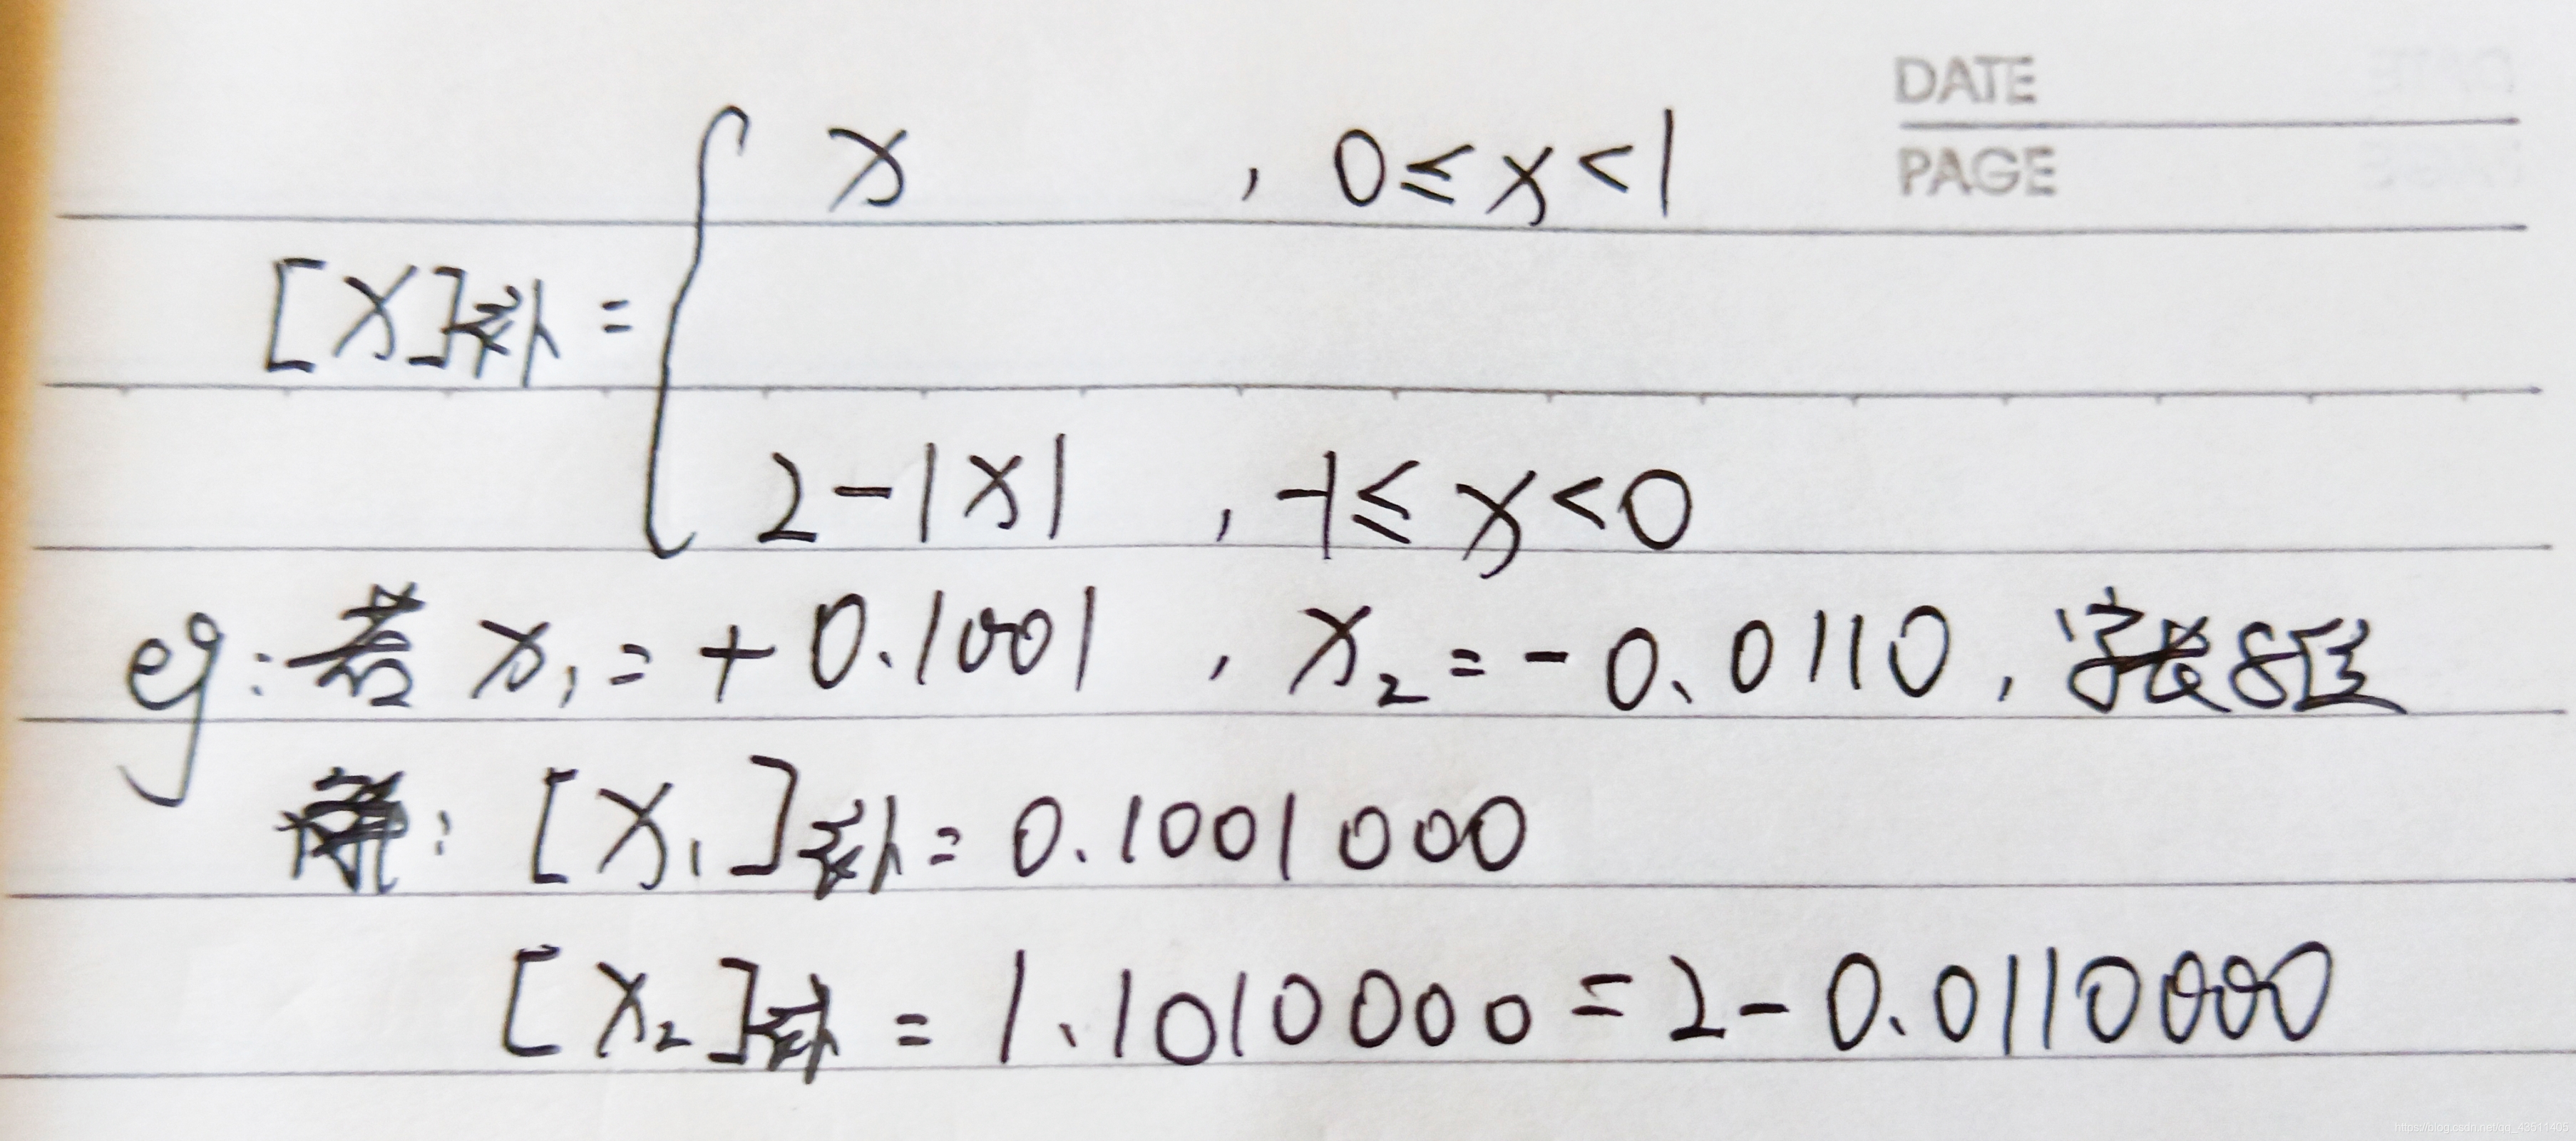 DATE
PAGE
[X]补 = { x , 0≤x<1
2-|x| , -1≤x<0
eg:若 x₁=+0.1001 , x₂=-0.0110, 字长8位
解: [X₁]补=0.1001000
[X₂]补=1.1010000=2-0.0110000